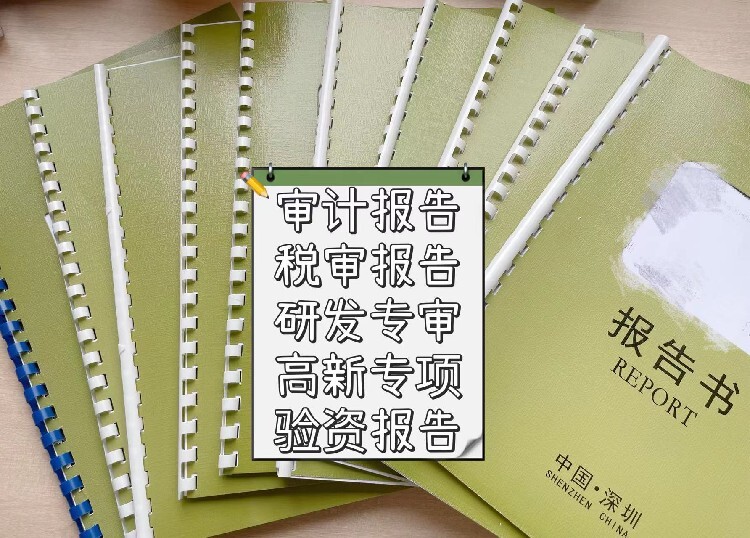 审计报告
税审报告
研发专审
高新专项
验资报告
报告书
REPORT
中国·深圳
SHENZHEN CHINA